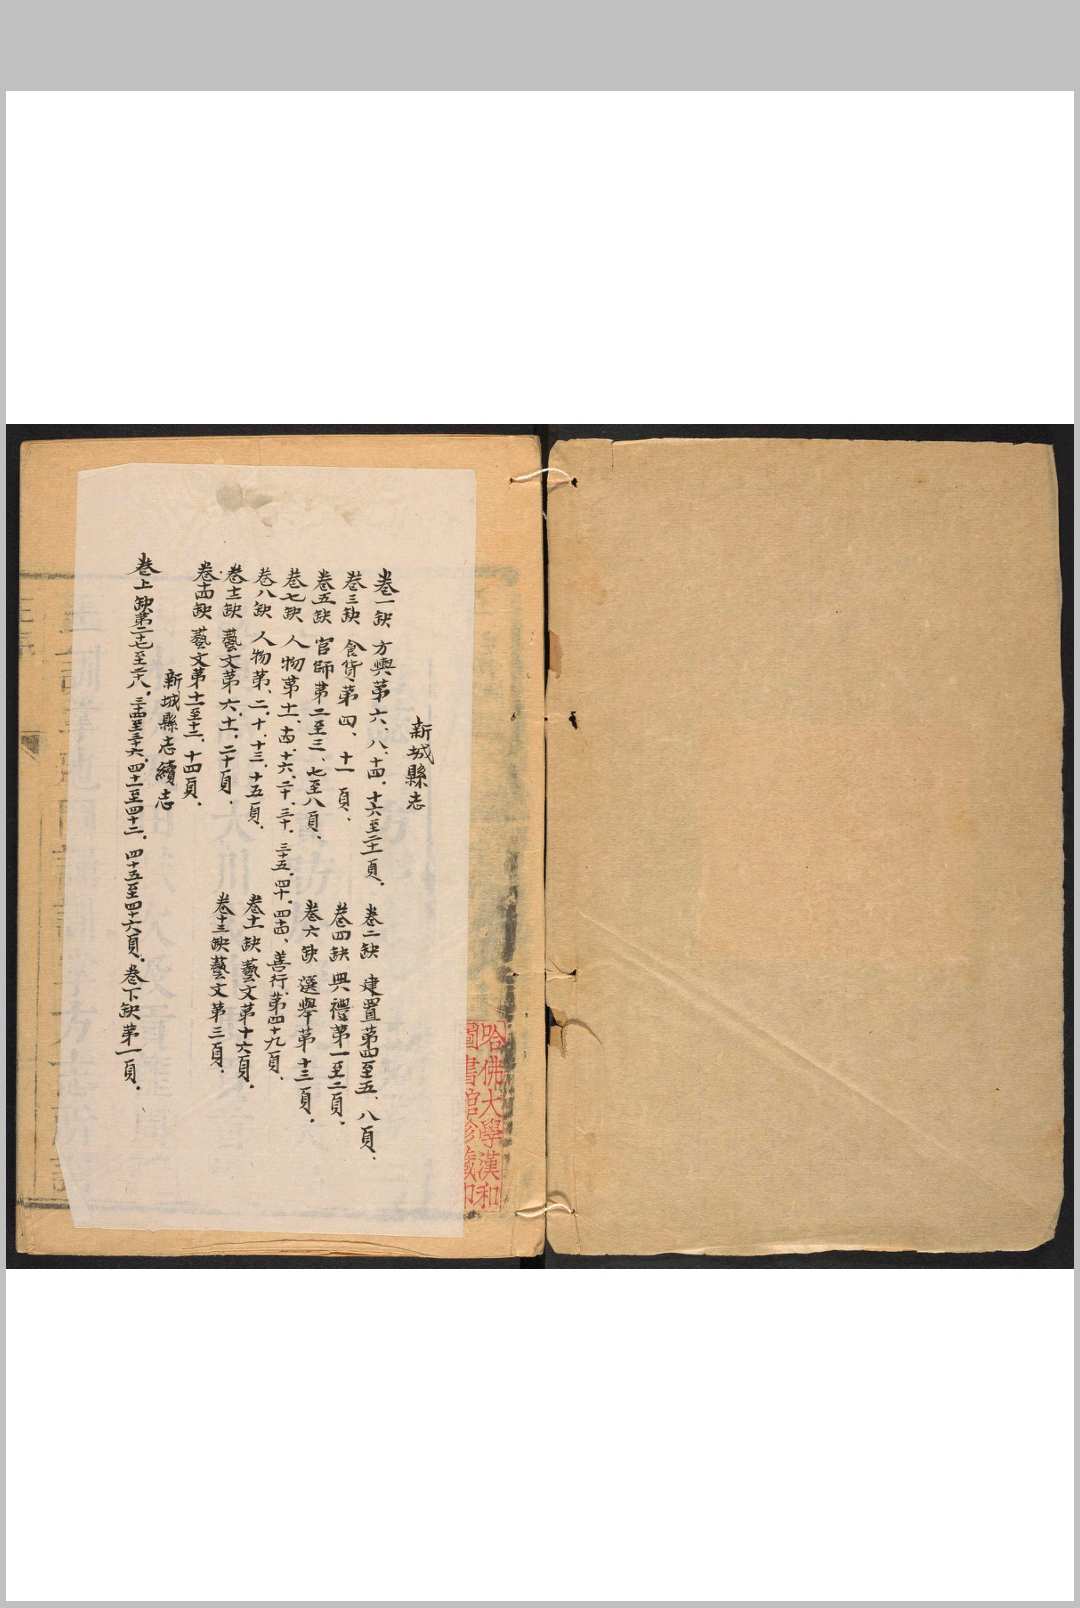 新城縣志
卷一缺 方輿第六、八、十四、十六至二十一頁、 卷二缺 建置第四至五、八頁、
卷三缺 食貨第四、十一頁、 卷四缺 典禮第一至二頁、
卷五缺 官師第二至三、七至八頁、 卷六缺 選舉第十三頁、
卷七缺 人物第十一、十四、十六、二十、三十、三十五、四十、四十四、善行、第四十九頁、
卷八缺 人物第、二、十、十三、十五頁、 卷十一缺 藝文第十六頁、
卷十二缺 藝文第六、十一、二十頁、 卷十三缺藝文第三頁、
卷十四缺 藝文第十一至十二、十四頁、
新城縣志續志
卷上缺第二十七至二十八、三十四至三十六、四十一至四十二、四十五至四十六頁、卷下缺第一頁、
哈佛大學漢和
圖書館珍藏印